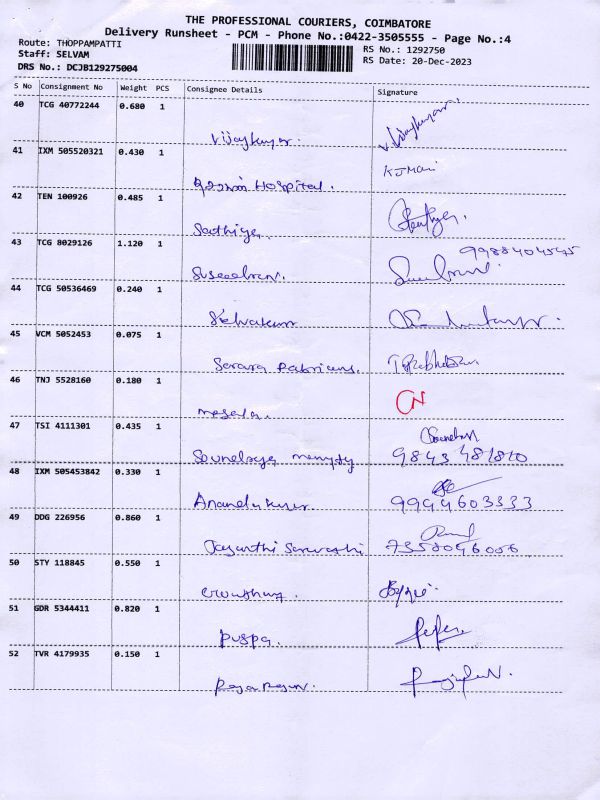 THE PROFESSIONAL COURIERS, COIMBATORE
Delivery Runsheet - PCM - Phone No.:0422-3505555 - Page No.:4
Route: THOPPAMPATTI RS No.: 1292750
Staff: SELVAM RS Date: 20-Dec-2023
DRS No.: DCJB129275004
S No Consignment No Weight PCS Consignee Details Signature
40 TCG 40772244 0.680 1
Vijaykumar. V. Vijaykumar.
41 IXM 505520321 0.430 1 KJMani
Hospital.
42 TEN 100926 0.485 1
Sathiya.
43 TCG 8029126 1.120 1 9988404545
44 TCG 50536469 0.240 1
Selvakumar
45 VCM 5052453 0.075 1
46 TNJ 5528160 0.180 1
47 TSI 4111301 0.435 1
48 IXM 505453842 0.330 1
Anandakumar. 9994603333
49 DDG 226956 0.860 1
Jayanthi 7358096056
50 STY 118845 0.550 1
51 GDR 5344411 0.820 1
Puspa.
52 TVR 4179935 0.150 1
Rajarajan.